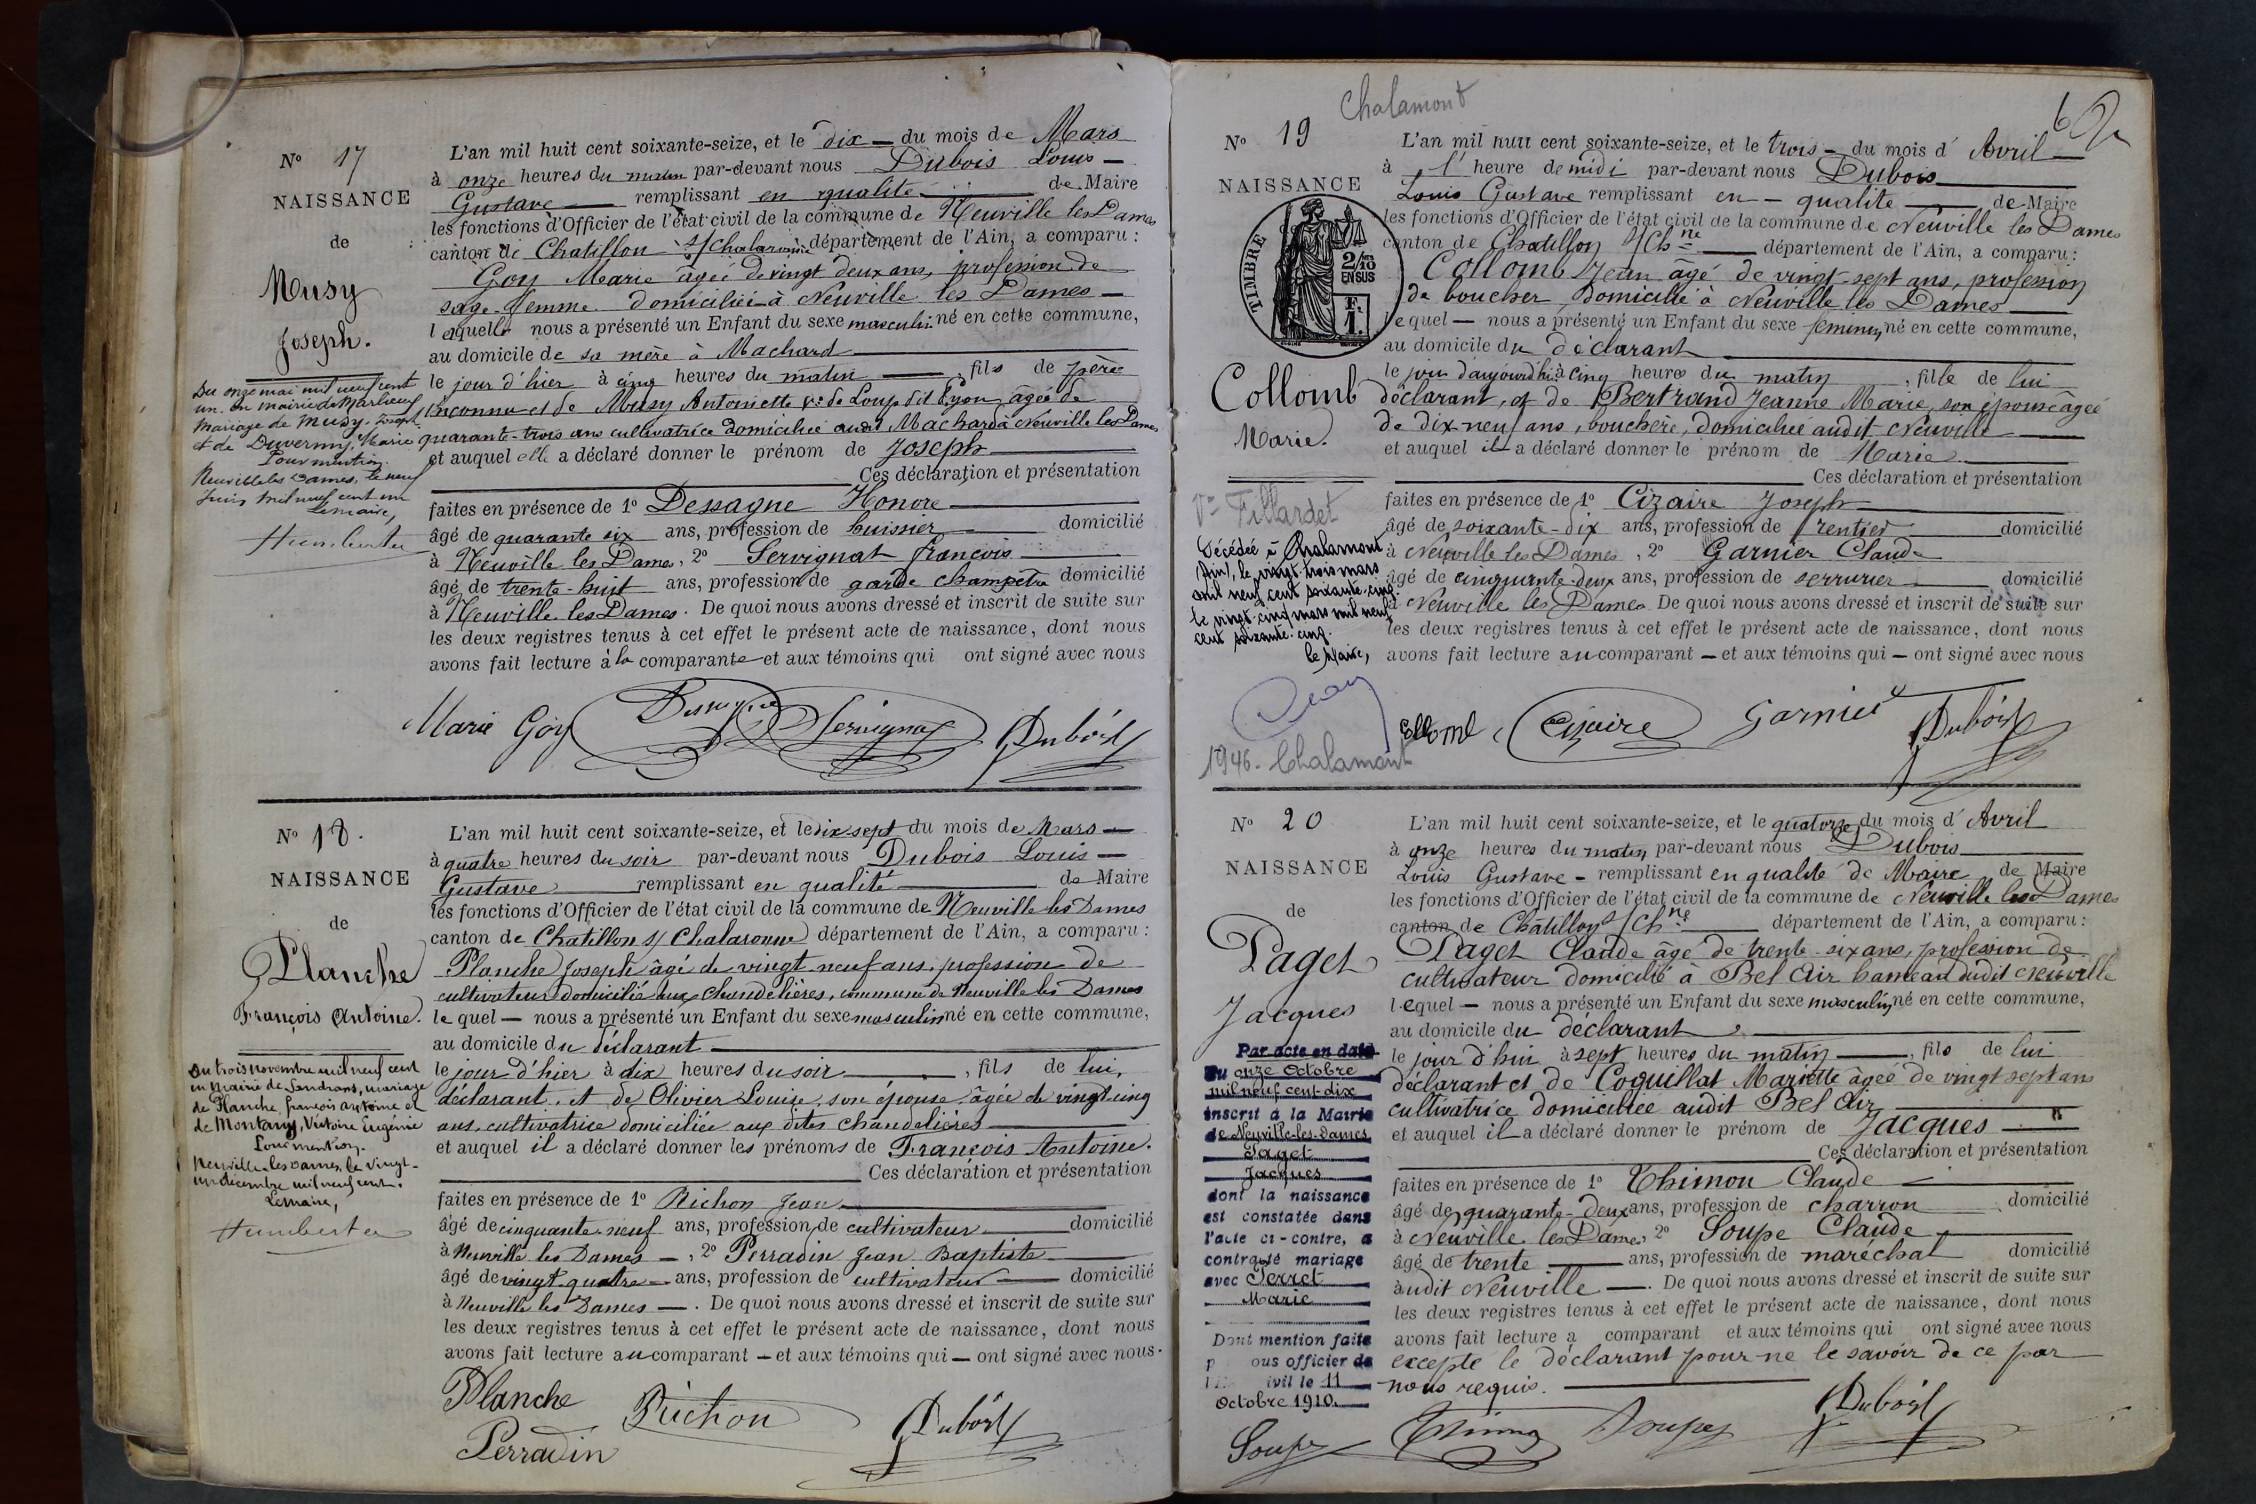 N° 17
NAISSANCE
de
Musy
Joseph.
Du onze mai mil neuf cent
un en mairie de Marlieux
mariage de Musy Joseph
et de Duverny, Marie
Pour mention.
Neuville les Dames, le neuf
Juin mil neuf cent un
Le maire,
L'an mil huit cent soixante-seize, et le dix — du mois de Mars
à onze heures du matin par-devant nous Dubois Louis —
Gustave — remplissant en qualité — de Maire
les fonctions d'Officier de l'état civil de la commune de Neuville les Dames
canton de Chatillon s/ Chalaronne département de l'Ain, a comparu :
Goy Marie âgée de vingt deux ans, profession de
sage-femme domiciliée à Neuville les Dames —
laquelle nous a présenté un Enfant du sexe masculin né en cette commune,
au domicile de sa mère à Machard —
le jour d'hier à cinq heures du matin —, fils de père
inconnu et de Musy Antoinette Vve de Loup dit Gyon âgée de
quarante-trois ans cultivatrice domiciliée audit Machard à Neuville les Dames
et auquel elle a déclaré donner le prénom de Joseph —
Ces déclaration et présentation
faites en présence de 1° Dessagne Honoré —
âgé de quarante six ans, profession de huissier — domicilié
à Neuville les Dames, 2° Servignat françois —
âgé de trente-huit ans, profession de garde champêtre domicilié
à Neuville les Dames. De quoi nous avons dressé et inscrit de suite sur
les deux registres tenus à cet effet le présent acte de naissance, dont nous
avons fait lecture à la comparante et aux témoins qui ont signé avec nous
Marie Goy Servignat Dubois
N° 18.
NAISSANCE
de
Planche
François Antoine.
Du trois novembre mil neuf cent
en mairie de Sandrans, mariage
de Planche, françois antoine et
de Montany, Victoire Eugénie
Pour mention.
Neuville les Dames, le vingt-
un décembre mil neuf cent.
Le maire,
L'an mil huit cent soixante-seize, et le dix sept du mois de Mars —
à quatre heures du soir par-devant nous Dubois Louis —
Gustave — remplissant en qualité — de Maire
les fonctions d'Officier de l'état civil de la commune de Neuville les Dames
canton de Chatillon s/ Chalaronne département de l'Ain, a comparu :
Planche Joseph âgé de vingt neuf ans, profession de
cultivateur domicilié aux Chandelières, commune de Neuville les Dames
le quel — nous a présenté un Enfant du sexe masculin né en cette commune,
au domicile du déclarant —
le jour d'hier à dix heures du soir —, fils de lui,
déclarant, et de Olivier Louise, son épouse âgée de vingt cinq
ans, cultivatrice domiciliée aux dites Chandelières —
et auquel il a déclaré donner les prénoms de François Antoine.
Ces déclaration et présentation
faites en présence de 1° Richon Jean —
âgé de cinquante-neuf ans, profession de cultivateur — domicilié
à Neuville les Dames —, 2° Perradin Jean Baptiste —
âgé de vingt-quatre — ans, profession de cultivateur — domicilié
à Neuville les Dames —. De quoi nous avons dressé et inscrit de suite sur
les deux registres tenus à cet effet le présent acte de naissance, dont nous
avons fait lecture au comparant — et aux témoins qui — ont signé avec nous.
Planche Richon Dubois
Perradin
Chalamont
N° 19
NAISSANCE
de
TIMBRE
2/10
EN SUS
F.
1.
Collomb
Marie.
Vve Fillardet
Décédée à Chalamont
(Ain), le vingt-trois mars
mil neuf cent soixante-cinq.
Le vingt-cinq mars mil neuf
cent soixante-cinq.
Le Maire,
1946. Chalamont
L'an mil huit cent soixante-seize, et le trois — du mois d'Avril —
à 1 heure de midi par-devant nous Dubois —
Louis Gustave remplissant en — qualité — de Maire
les fonctions d'Officier de l'état civil de la commune de Neuville les Dames
canton de Chatillon s/Chne — département de l'Ain, a comparu :
Collomb Jean âgé de vingt-sept ans, profession
de boucher domicilié à Neuville les Dames —
lequel — nous a présenté un Enfant du sexe féminin né en cette commune,
au domicile du déclarant —
le jour d'aujourd'hui à cinq heures du matin, fille de lui
déclarant, et de Bertrand Jeanne Marie, son épouse âgée
de dix-neuf ans, bouchère, domiciliée audit Neuville —
et auquel il a déclaré donner le prénom de Marie —
Ces déclaration et présentation
faites en présence de 1° Cizaire Joseph —
âgé de soixante-dix ans, profession de rentier — domicilié
à Neuville les Dames, 2° Garnier Claude
âgé de cinquante-deux ans, profession de serrurier — domicilié
à Neuville les Dames. De quoi nous avons dressé et inscrit de suite sur
les deux registres tenus à cet effet le présent acte de naissance, dont nous
avons fait lecture au comparant — et aux témoins qui — ont signé avec nous
Collomb Cizaire Garnier Dubois
N° 20
NAISSANCE
de
Paget
Jacques
Par acte en date
du onze Octobre
mil neuf cent dix
inscrit à la Mairie
de Neuville-les-Dames
Paget
Jacques
dont la naissance
est constatée dans
l'acte ci-contre, a
contracté mariage
avec Perret
Marie
Dont mention faite
p ous officier de
ivil le 11
Octobre 1910.
L'an mil huit cent soixante-seize, et le quatorze du mois d'Avril
à onze heures du matin par-devant nous Dubois —
Louis Gustave — remplissant en qualité de Maire de Maire
les fonctions d'Officier de l'état civil de la commune de Neuville les Dames
canton de Châtillon s/Chne — département de l'Ain, a comparu :
Paget Claude âgé de trente-six ans, profession de
cultivateur domicilié à Bel Air hameau dudit Neuville
lequel — nous a présenté un Enfant du sexe masculin né en cette commune,
au domicile du déclarant —
le jour d'hui à sept heures du matin —, fils de lui
déclarant et de Coquillat Mariette âgée de vingt sept ans
cultivatrice domiciliée audit Bel Air —
et auquel il a déclaré donner le prénom de Jacques —
Ces déclaration et présentation
faites en présence de 1° Thimon Claude —
âgé de quarante-deux ans, profession de charron domicilié
à Neuville les Dames, 2° Soupe Claude —
âgé de trente — ans, profession de maréchal domicilié
audit Neuville —. De quoi nous avons dressé et inscrit de suite sur
les deux registres tenus à cet effet le présent acte de naissance, dont nous
avons fait lecture a comparant et aux témoins qui ont signé avec nous
excepté le déclarant pour ne le savoir de ce par
nous requis. —
Soupe Thimon Dubois